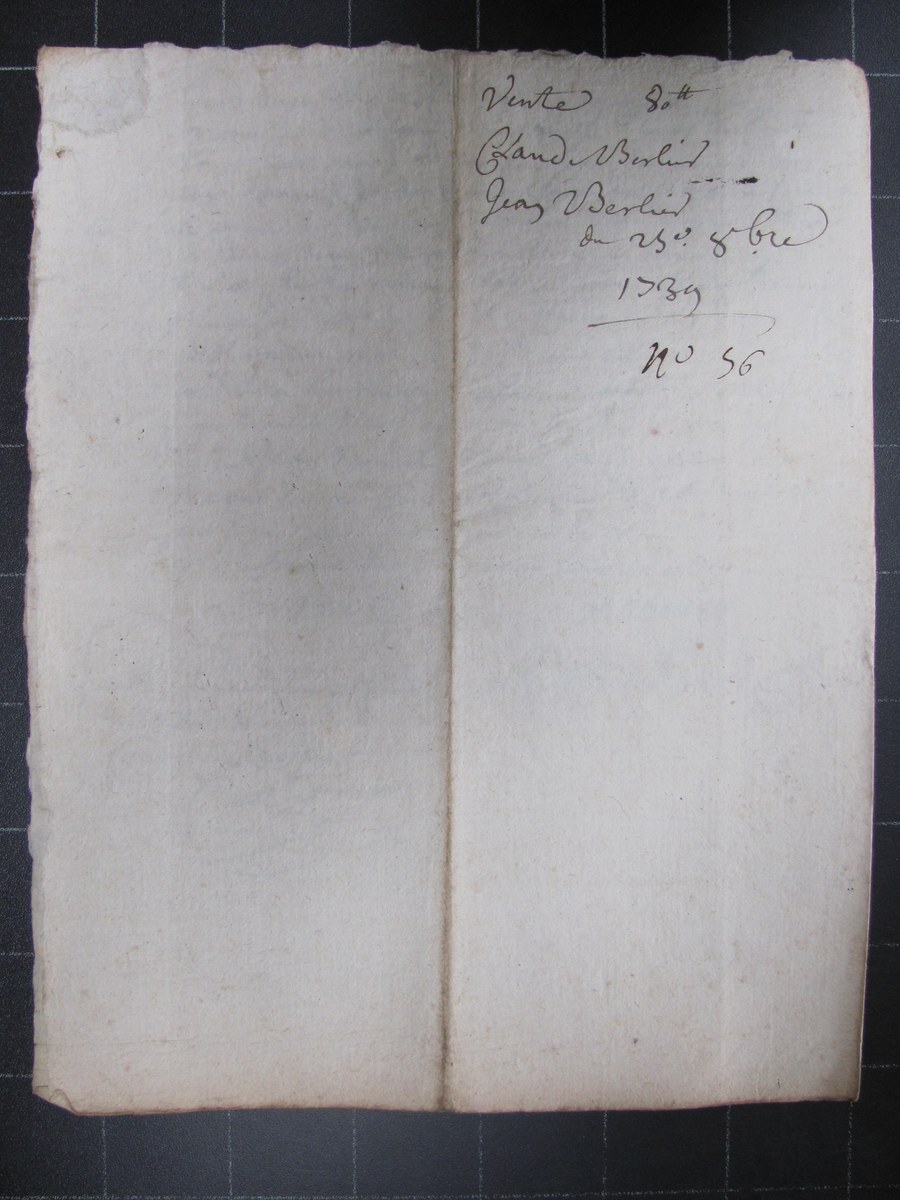 Vente 80tt
Claude Berlier
Jean Berlier
du 25e. 8bre
1739
No 56